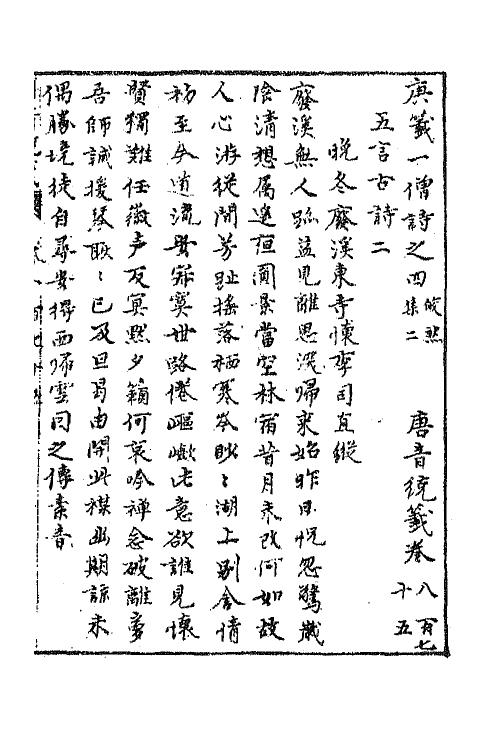 庚籤一僧詩之四 皎然集二 唐音統籤卷 八百七十五
五言古詩二
晚冬廢溪東寺懷李司直縱
廢溪無人跡益見離思深歸來始昨日恍忽驚歲
陰清想屬遙夜圓景當空林宿昔月未改何如故
人心游從間芳趾搖落栖寒岑眇〻湖上別含情
初至今道流安寂寞世路倦嶇嶔此意欲誰見懷
賢獨難任微聲反冥默夕籟何哀吟禪念破離夢
吾師誠援琴耿〻已及旦曷由開此襟幽期諒未
偶勝境徒自尋安得西歸雲因之傳素音